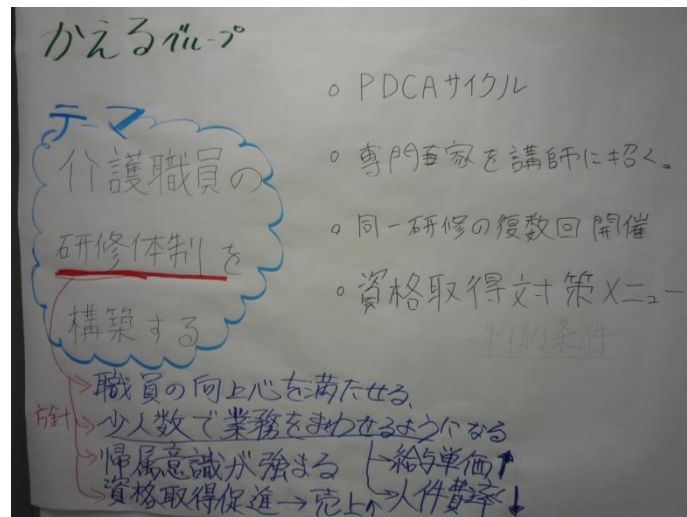 かえるグループ
テーマ
介護職員の
研修体制を
構築する
。PDCAサイクル
。専門家を講師に招く。
。同一研修の復数回開催
。資格取得対策メニュー
制約条件
方針
→職員の向上心を満たせる、
→少人数で業務をまわせるようになる
→帰属意識が強まる →給与単価↑
→資格取得促進→売上↑ →人件費率↓